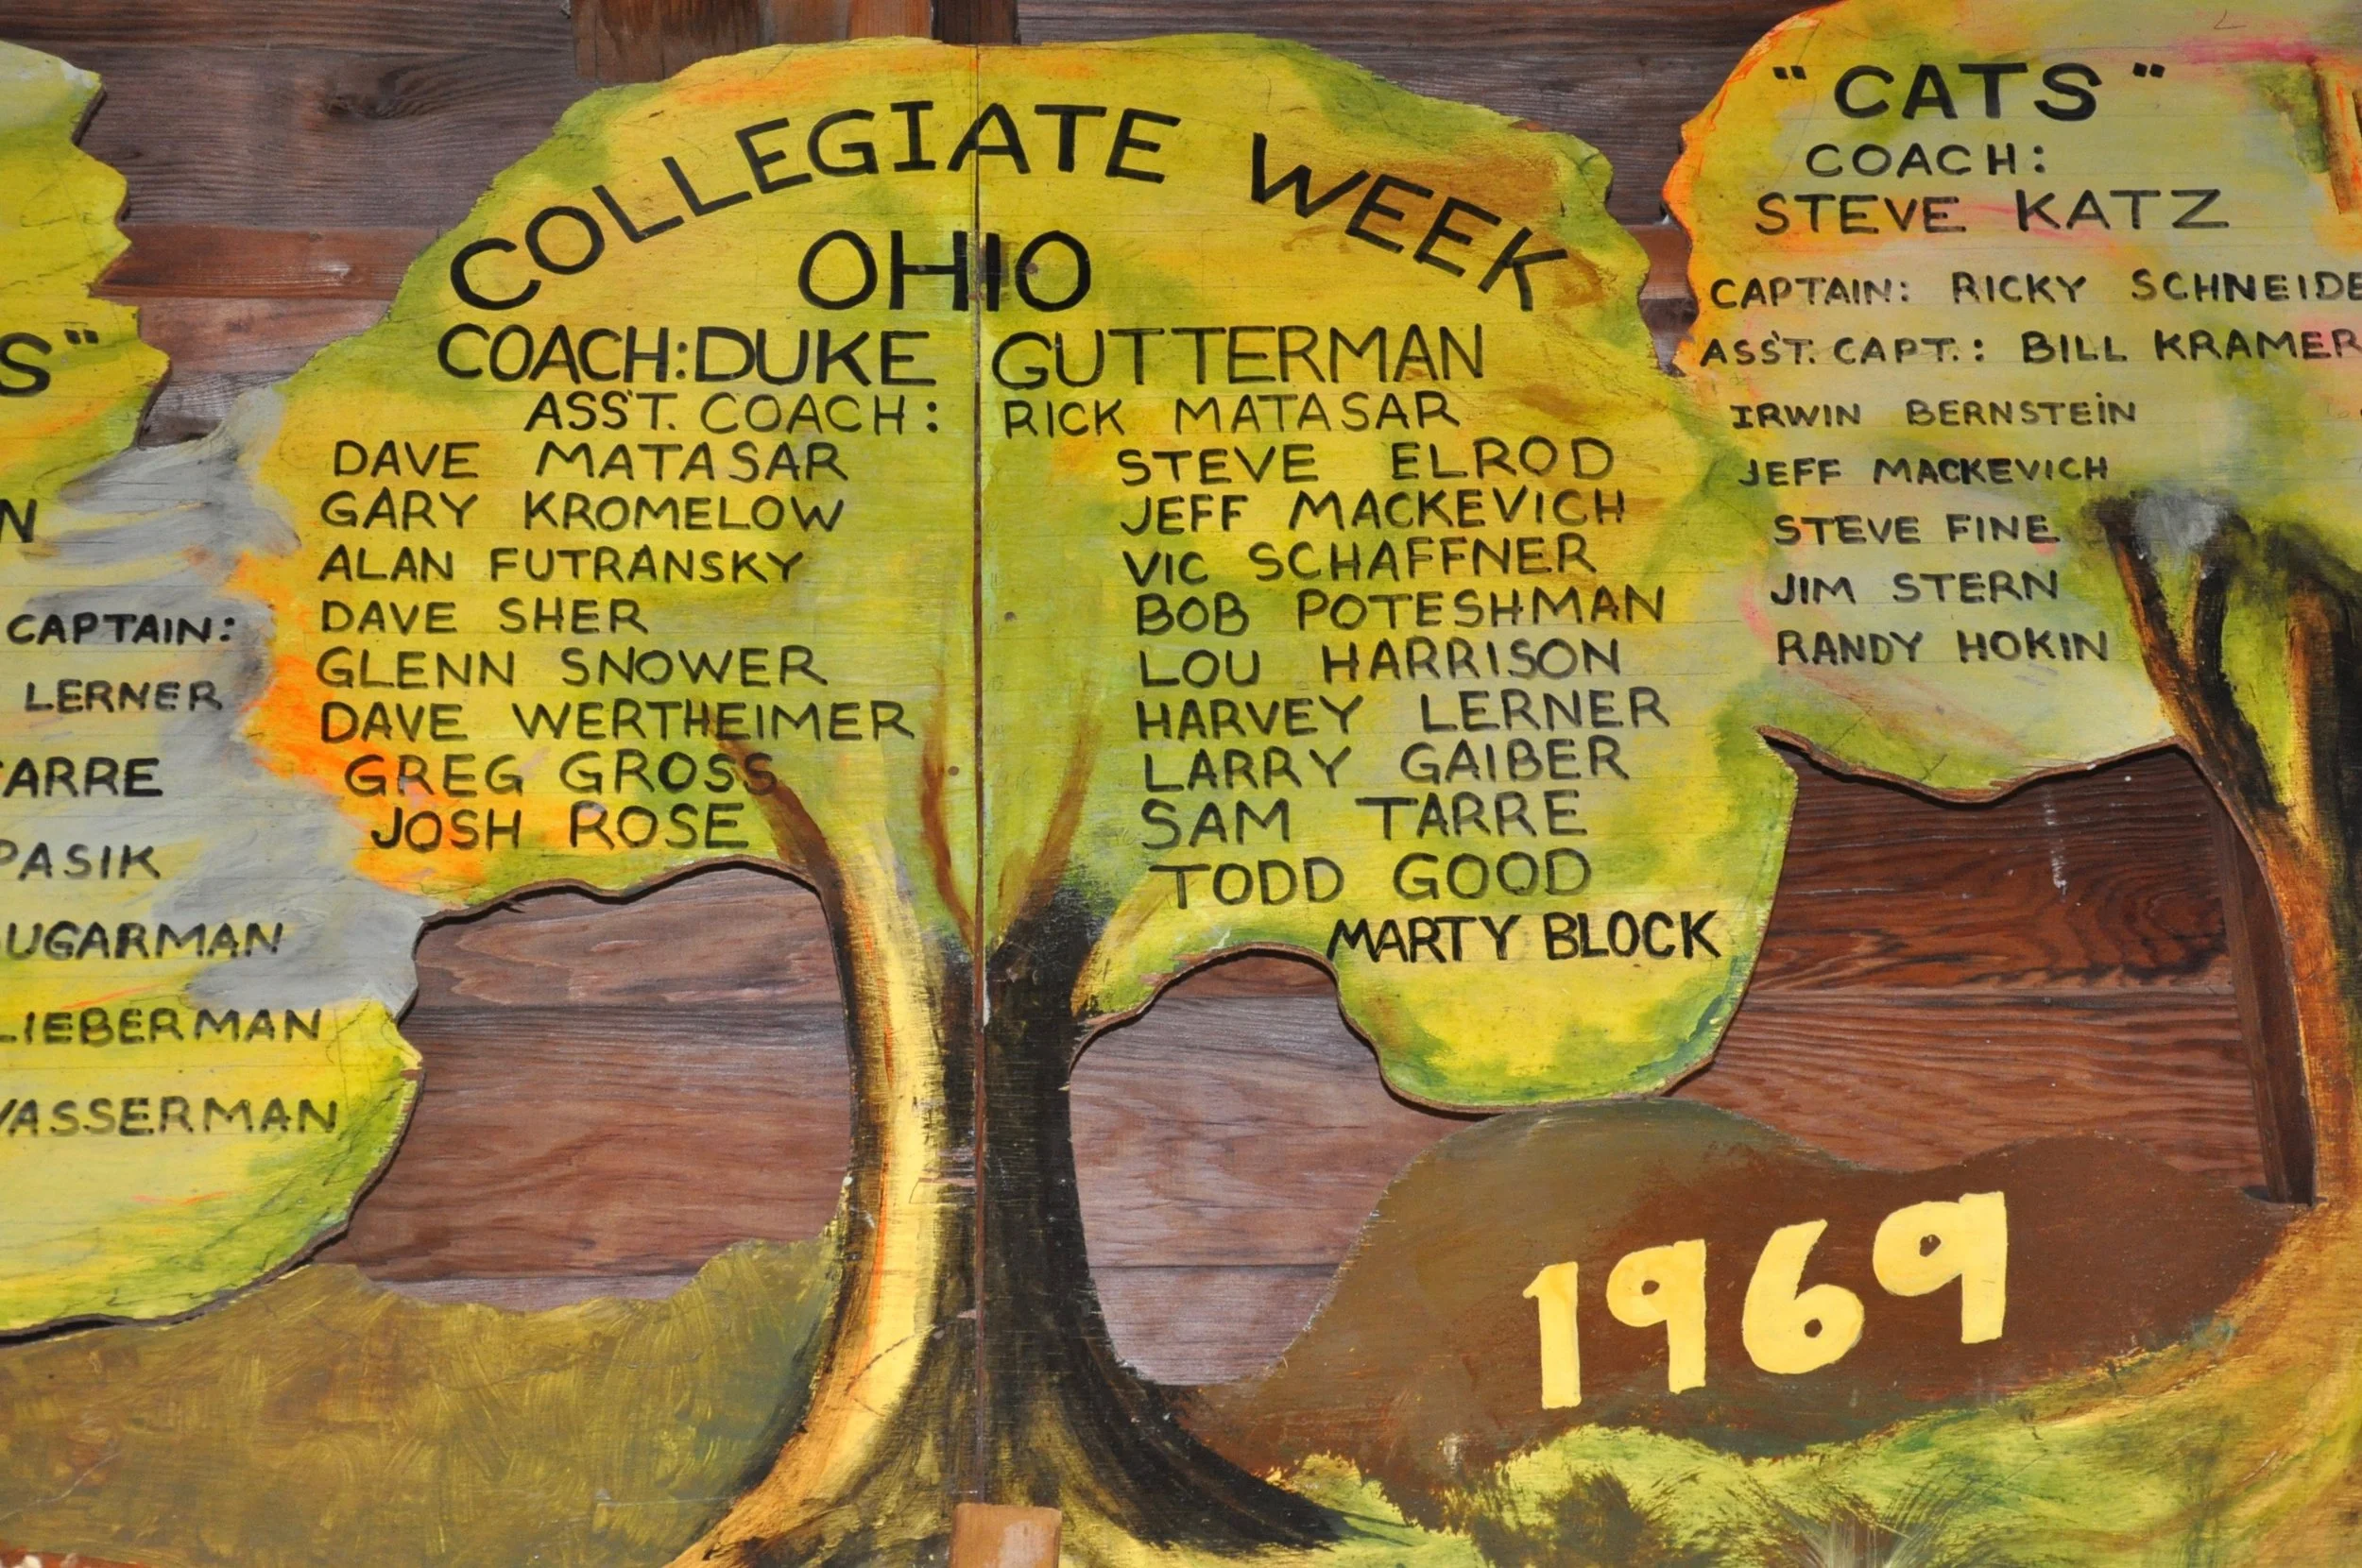 COLLEGIATE WEEK
OHIO
COACH: DUKE GUTTERMAN
ASS'T. COACH: RICK MATASAR
DAVE MATASAR
GARY KROMELOW
ALAN FUTRANSKY
DAVE SHER
GLENN SNOWER
DAVE WERTHEIMER
GREG GROSS
JOSH ROSE
STEVE ELROD
JEFF MACKEVICH
VIC SCHAFFNER
BOB POTESHMAN
LOU HARRISON
HARVEY LERNER
LARRY GAIBER
SAM TARRE
TODD GOOD
MARTY BLOCK
"CATS"
COACH:
STEVE KATZ
CAPTAIN: RICKY SCHNEIDE
ASS'T. CAPT.: BILL KRAMER
IRWIN BERNSTEIN
JEFF MACKEVICH
STEVE FINE
JIM STERN
RANDY HOKIN
S"
N
CAPTAIN:
LERNER
ARRE
PASIK
UGARMAN
LIEBERMAN
WASSERMAN
1969